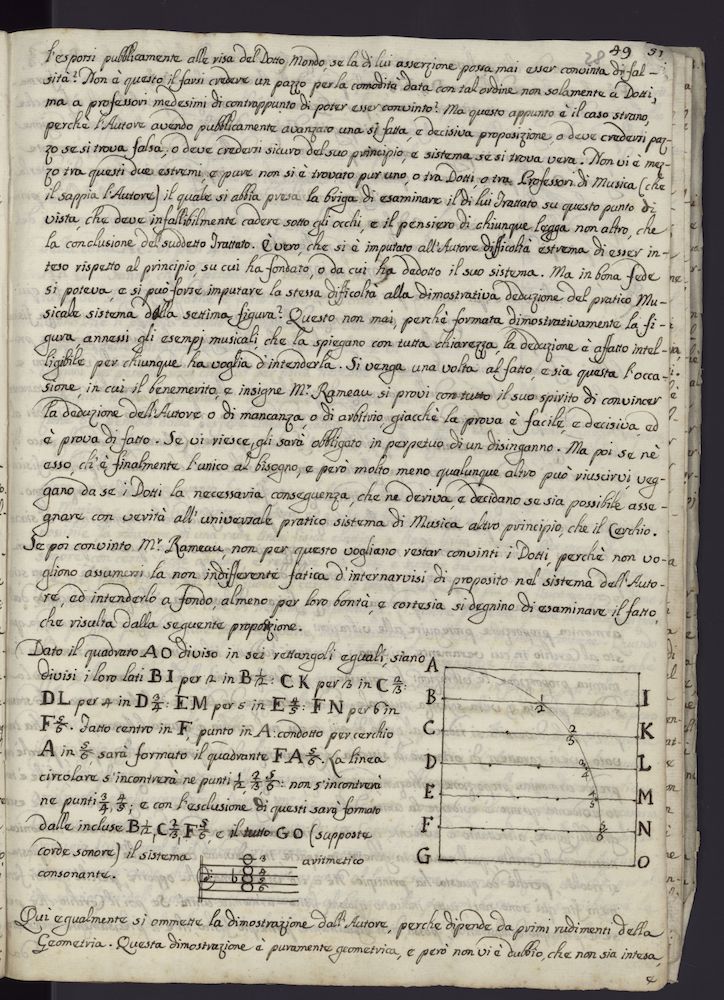 49 51
l'esporsi pubblicamente alle risa del Dotto Mondo se la di lui asserzione possa mai esser convinta di fal-
sità? Non è questo il farsi credere un pazzo per la comodità data con tal ordine non solamente a Dotti,
ma a professori medesimi di contrappunto di poter esser convinto? Ma questo appunto è il caso strano,
perchè l'Autore avendo pubblicamente avanzato una sì fatta, e decisiva proposizione, o deve credersi paz-
zo se si trova falsa, o deve credersi sicuro del suo principio, e sistema se si trova vera. Non vi è mez-
zo tra questi due estremi, e pure non si è trovato pur uno, o tra Dotti, o tra Professori di Musica (che
il sappia l'Autore) il quale si abbia presa la briga di esaminare il di lui Trattato su questo punto di
vista, che deve infallibilmente cadere sotto gli occhi, e il pensiero di chiunque legga non altro, che
la conclusione del suddetto Trattato. È vero, che si è imputato all'Autore difficoltà estrema di esser in-
teso rispetto al principio, su cui ha fondato, o da cui ha dedotto il suo sistema. Ma in bona fede
si poteva, e si può forse imputare la stessa difficoltà alla dimostrativa deduzione del pratico Mu-
sicale sistema della settima figura? Questo non mai, perchè formata dimostrativamente la fi-
gura, annessi gli esempj musicali, che la spiegano con tutta chiarezza, la deduzione è affatto intel-
ligibile per chiunque ha voglia d'intenderla. Si venga una volta al fatto, e sia questa l'occa-
sione, in cui il benemerito, e insigne Mr. Rameau si provi con tutto il suo spirito di convincer
la deduzione dell'Autore o di mancanza, o di arbitrio, giacchè la prova è facile, e decisiva, ed
è prova di fatto. Se vi riesce, gli sarà obbligato in perpetuo di un disinganno. Ma poi se nè
esso, ch'è finalmente l'unico al bisogno, e però molto meno qualunque altro può riuscirvi veg-
gano da se i Dotti la necessaria conseguenza, che ne deriva, e decidano se sia possibile asse-
gnare con verità all'universale pratico sistema di Musica altro principio, che il Cerchio.
Se poi convinto Mr. Rameau, non per questo vogliano restar convinti i Dotti, perchè non vo-
gliono assumersi la non indifferente fatica d'internarvisi di proposito nel sistema dell'Auto-
re, ed intenderlo a fondo, almeno per loro bontà, e cortesia si degnino di esaminare il fatto,
che risulta dalla seguente proposizione.
Dato il quadrato AO diviso in sei rettangoli eguali, siano
divisi i loro lati BI per 2 in B 1/2: CK per 3 in C 2/3:
DL per 4 in D 3/4: EM per 5 in E 4/5: FN per 6 in
F 5/6. Fatto centro in F, punto in A: condotto per cerchio
A in 5/6, sarà formato il quadrante FA 5/6. La linea
circolare s'incontrerà ne punti 1/2 2/3 5/6: non s'incontrerà
ne punti 3/4, 4/5; e con l'esclusione di questi sarà formato
dalle incluse B 1/2, C 2/3, F 5/6 e il tutto GO (supposte
corde sonore) il sistema
consonante.
3
4
5
6
aritmetico
A
B 1/2 I
C 2/3 K
D 3/4 L
E 4/5 M
F 5/6 N
G O
Qui egualmente si ommette la dimostrazione dall'Autore, perche dipende da primi rudimenti della
Geometria. Questa dimostrazione è puramente geometrica, e però non vi è dubbio, che non sia intesa,